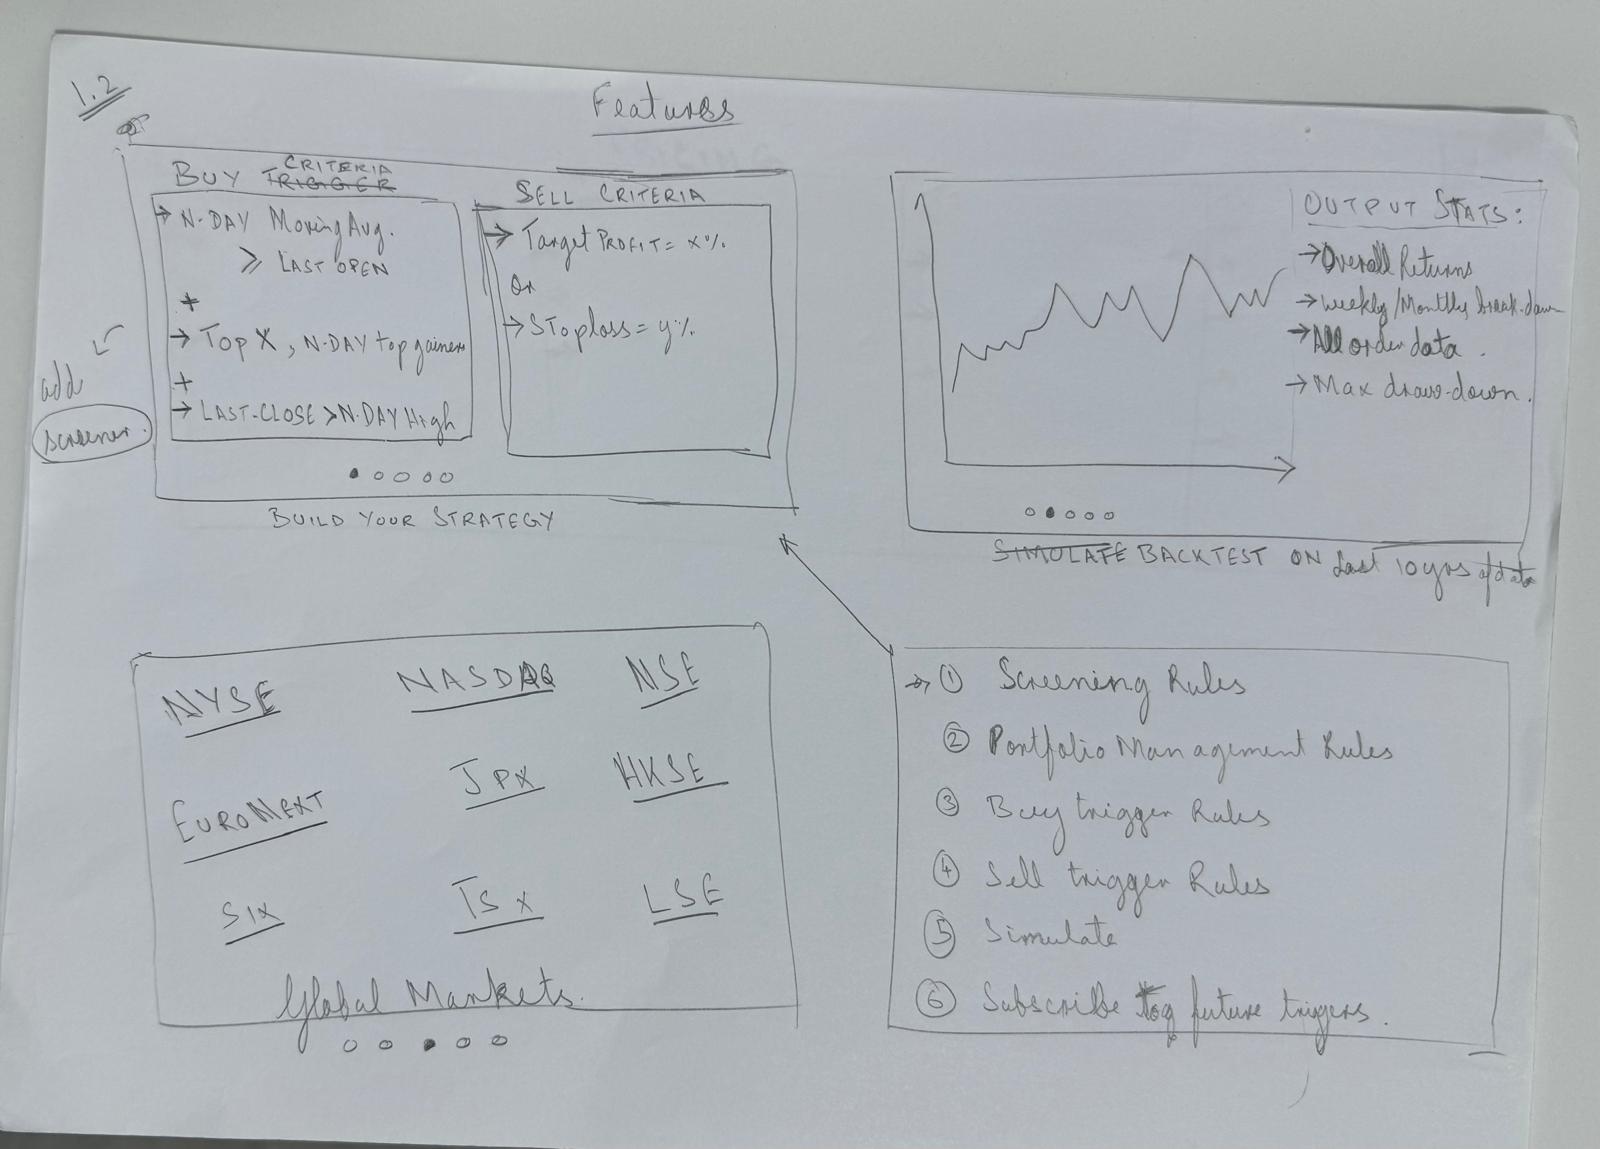 1.2
Features
BUY TRIGGER CRITERIA
→ N-DAY Moving Avg.
≥ LAST OPEN
+
→ TOP X, N-DAY top gainers
+
→ LAST-CLOSE > N-DAY High
SELL CRITERIA
→ Target PROFIT = x%
Or
→ Stoploss = y%
add
screener.
BUILD YOUR STRATEGY
OUTPUT STATS:
→ Overall Returns
→ Weekly/Monthly break-down
→ All order data.
→ Max draw-down.
SIMULATE BACKTEST ON last 10 yrs of data
NYSE NASDAQ NSE
EURONEXT JPX HKSE
SIX TSX LSE
Global Markets.
→ ① Screening Rules
② Portfolio Management Rules
③ Buy trigger Rules
④ Sell trigger Rules
⑤ Simulate
⑥ Subscribe to future triggers.